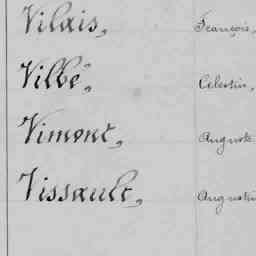 Vilais, François,
Villé, Célestin,
Vimont, Auguste
Vissault, Augustin